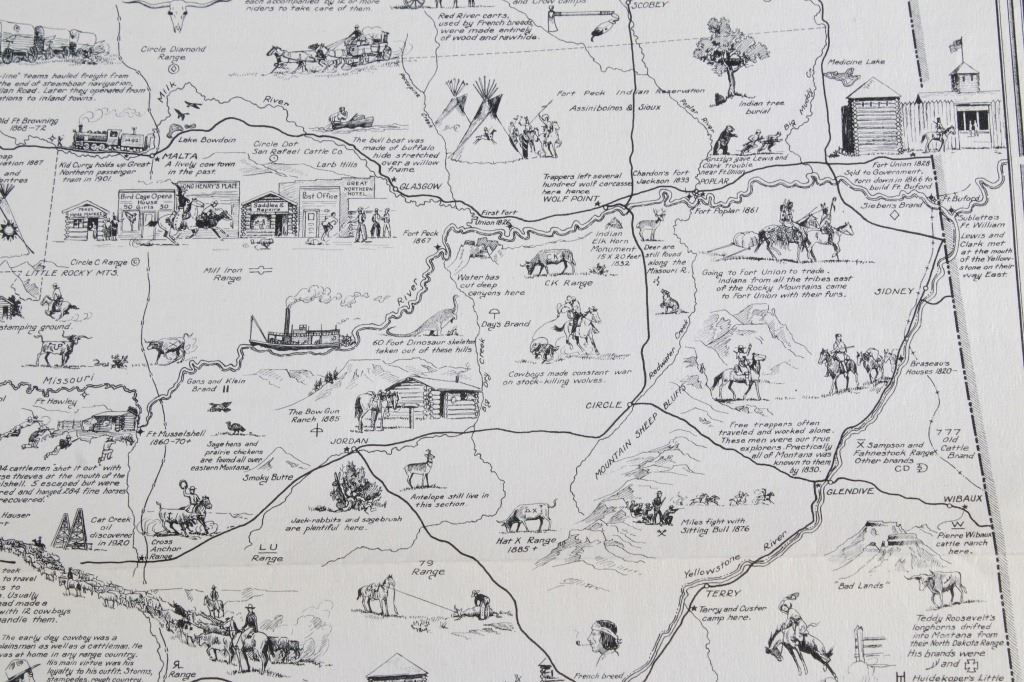 each accompanied by 12 or more
riders to take care of them.
Red River carts,
used by French breeds
were made entirely
of wood and rawhide.
and Crow camps
SCOBEY
Circle Diamond
Range
line" teams hauled freight from
the end of steamboat navigation,
Later they operated from
to inland towns.
Milk
River
Medicine Lake
Fort Peck Indian Reservation
Assiniboines & Sioux
Poplar River
Indian tree
burial
Big Muddy
Old Ft Browning
1868-72
Lake Bowdoin
1887
Kid Curry holds up Great
Northern passenger
train in 1901.
MALTA
A lively cow town
in the past.
Circle Dot
San Rafael Cattle Co
Larb Hills
The bull boat was
made of buffalo
hide stretched
over a willow
frame.
GLASGOW
Trappers left several
hundred wolf carcasses
here hence
WOLF POINT
Chardon's fort
Jackson 1833
Grizzly gave Lewis and
Clark trouble
near Ft. Union
POPLAR
Fort Union 1828
Sold to Government,
torn down in 1866 to
build Ft. Buford
Ft Buford
Sieben's Brand
Sublette's
Ft William
Lewis and
Clark met
at the mouth
of the Yellow-
stone on their
way East.
Bird Cage Opera
House
50 Girls 50
LONG HENRY'S PLACE
Saddles &
Repairs
Post Office
GREAT
NORTHERN
First Fort
Union
Fort Peck
1867
Indian
Elk Horn
Monument
15 X 20 feet
1832
Deer are
still found
along the
Missouri R.
Fort Poplar 1861
Circle C Range
LITTLE ROCKY MTS.
Mill Iron
Range
River
Water has
cut deep
canyons here
CK Range
Going to Fort Union to trade.
Indians from all the tribes east
of the Rocky Mountains came
to Fort Union with their furs.
SIDNEY
stamping ground.
60 Foot Dinosaur skeleton
taken out of these hills
Day's Brand
Big Dry Creek
Cowboys made constant war
on stock-killing wolves.
Redwater Creek
Missouri
Gans and Klein
Brand
Braseau's
Houses 1820-
Ft Hawley
The Bow Gun
Ranch 1885
CIRCLE
MOUNTAIN SHEEP BLUFFS
Free trappers often
traveled and worked alone.
These men were our true
explorers. Practically
all of Montana was
known to them
by 1830.
777
Old
Cattle
Brand
Sampson and
Fahnestock Range
Other brands
CD
Ft Musselshell
1860-70+
Sage hens and
prairie chickens
are found all over
eastern Montana.
JORDAN
Smoky Butte
cattlemen "shot it out" with
thieves at the mouth of the
5 escaped but were
and hanged. 284 fine horses
recovered.
Hauser
Antelope still live in
this section.
Jack-rabbits and sagebrush
are plentiful here.
GLENDIVE
WIBAUX
W
Pierre Wibaux
cattle ranch
here.
Cat Creek
oil
discovered
in 1920
Cross
Anchor
Range
LU
Range
Hat X Range
1885+
Miles fight with
Sitting Bull 1876
79
Range
Yellowstone River
TERRY
Terry and Custer
camp here.
"Bad Lands"
took
to travel
Usually
made a
with 12 cowboys
handle them.
Teddy Roosevelt's
longhorns drifted
into Montana from
their North Dakota Range
His brands were
and
Huidekoper's Little
The early day cowboy was a
plainsman as well as a cattleman. He
was at home in any range country.
His main virtue was his
loyalty to his outfit. Storms,
stampedes, rough country,
Range
French breed